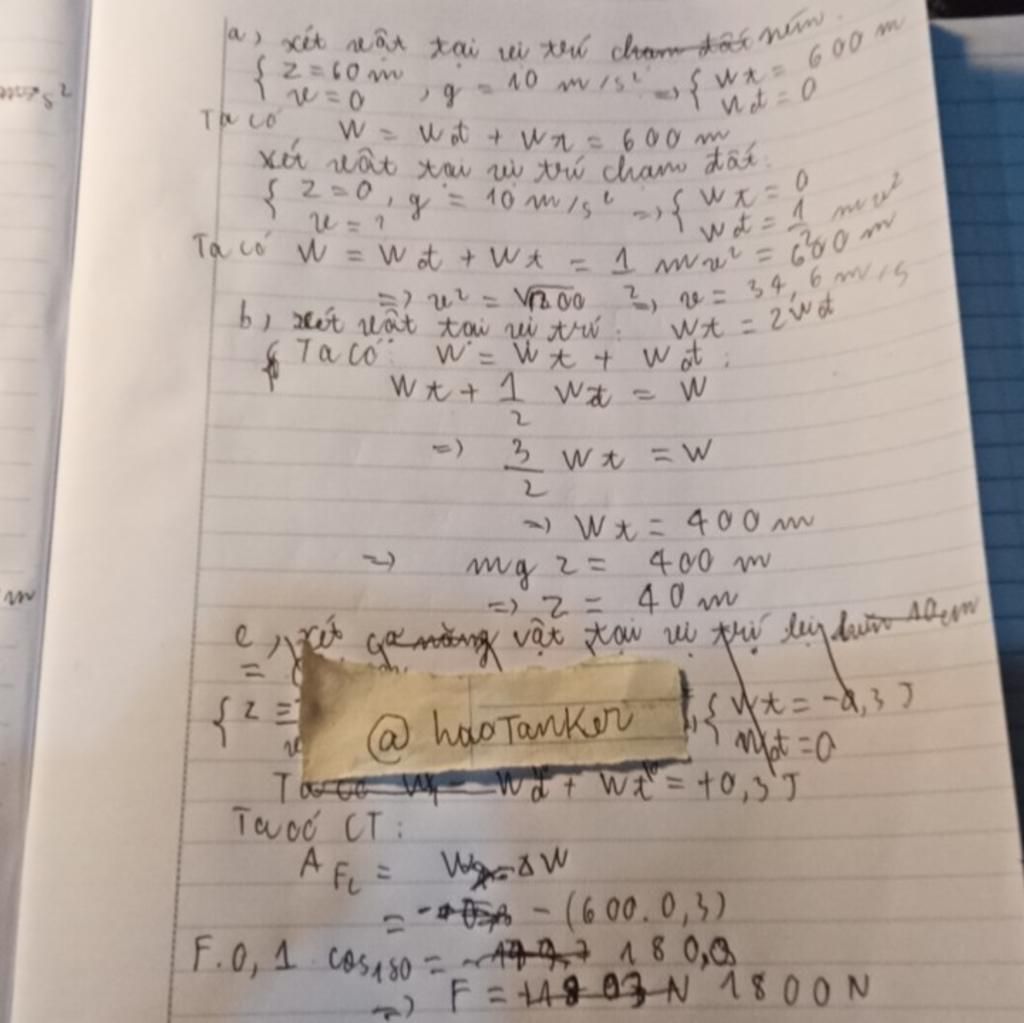 a, xét vật tại vị trí ném.
{ z = 60 m , g = 10 m/s² => { Wt = 600 m
v = 0 Wđ = 0
Ta có W = Wđ + Wt = 600 m
xét vật tại vị trí chạm đất:
{ z = 0, g = 10 m/s² => { Wt = 0
v = ? Wđ = 1/2 mv²
Ta có W = Wđ + Wt = 1/2 mv² = 600 m
=> v² = √1200 => v = 34,6 m/s
b, xét vật tại vị trí: Wt = 2Wđ
Ta có: W = Wt + Wđ:
Wt + 1/2 Wt = W
=> 3/2 Wt = W
=> Wt = 400 m
=> mgz = 400 m
=> z = 40 m
c, xét vật tại vị trí
{ z = { Wt = -0,3 J
Wđ = 0
@haoTanker
Wđ + Wt = +0,3 J
Ta có CT:
A FC = ΔW
= - (600.0,3)
F.0,1 cos180 = 180,0
=> F = 1800 N